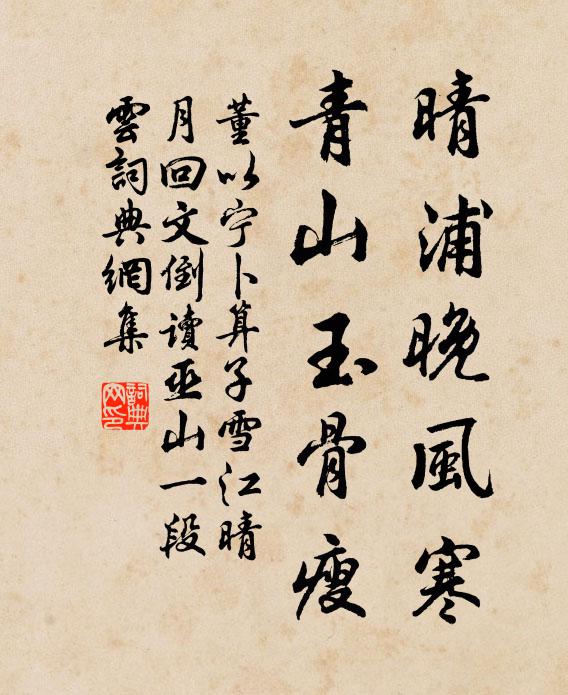 晴浦晚風寒
青山玉骨瘦
董以宁卜算子雪江晴
月回文倒讀巫山一段
雲詞典網集
詞典网印